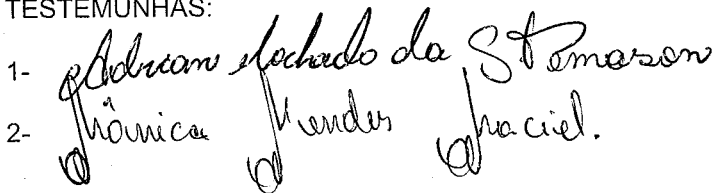 TESTEMUNHAS:
1- Adrian Machado da S Tomason
2- Mônica Mendes Maciel.